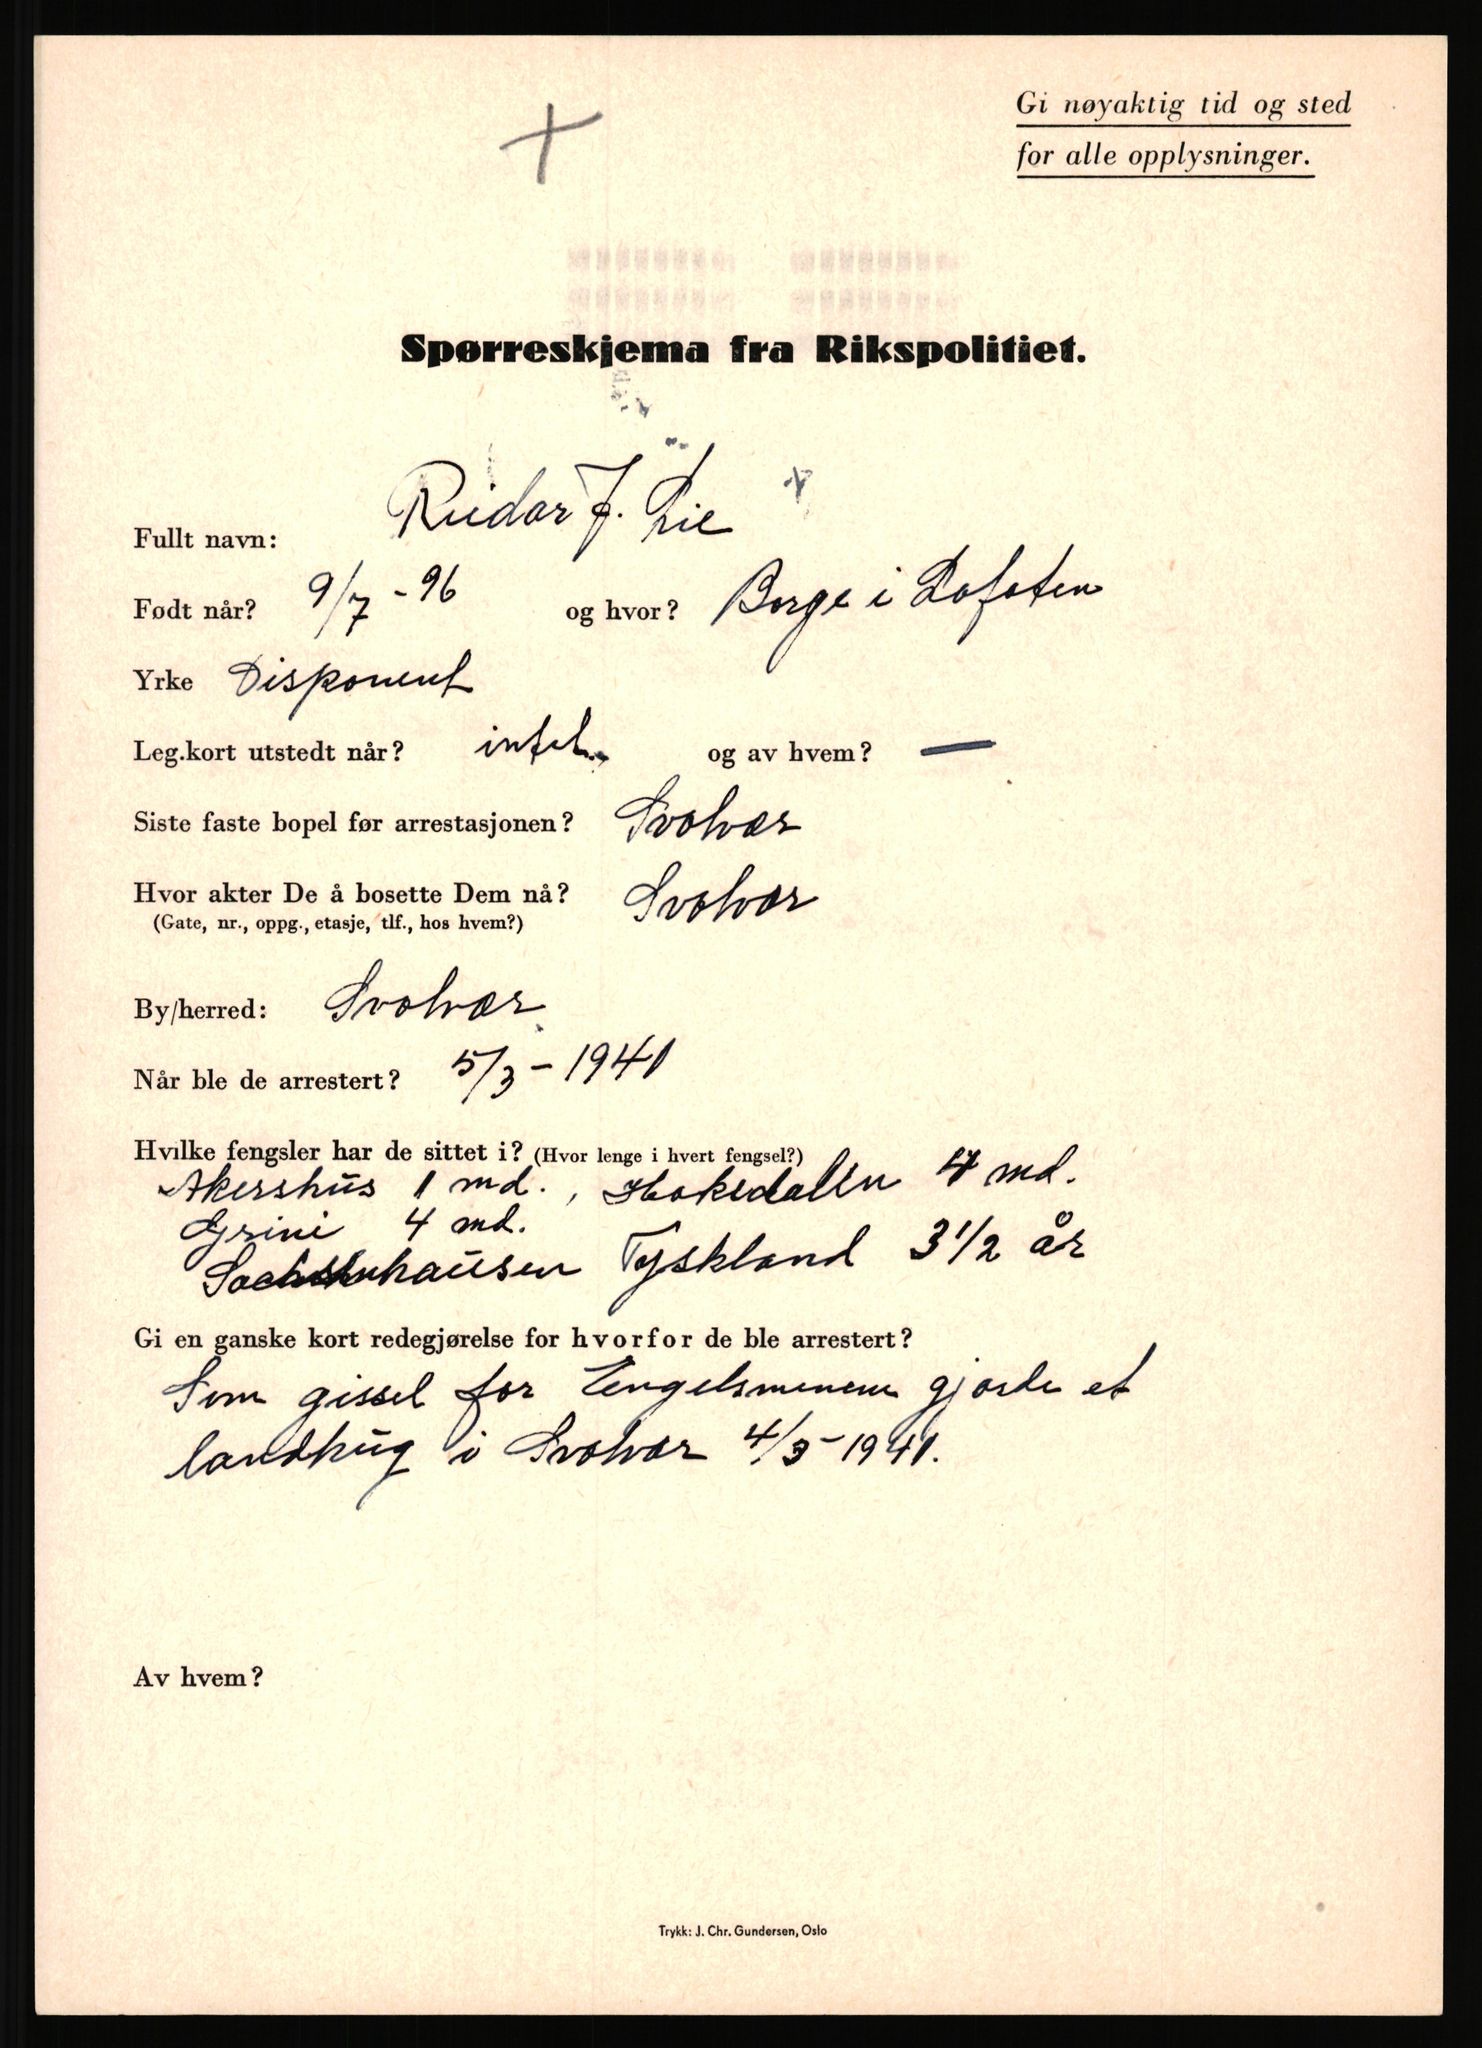 Gi nøyaktig tid og sted
for alle opplysninger.
Spørreskjema fra Rikspolitiet.
Fullt navn: Reidar J. Lie
Født når? 9/7-96 og hvor? Borge i Lofoten
Yrke Disponent
Leg.kort utstedt når? intet og av hvem? —
Siste faste bopel før arrestasjonen? Svolvær
Hvor akter De å bosette Dem nå? Svolvær
(Gate, nr., oppg., etasje, tlf., hos hvem?)
By/herred: Svolvær
Når ble de arrestert? 5/3-1941
Hvilke fengsler har de sittet i? (Hvor lenge i hvert fengsel?)
Akershus 1 md., Hokedalen 4 md.
Grini 4 md.
Sachsenhausen Tyskland 3 1/2 år
Gi en ganske kort redegjørelse for hvorfor de ble arrestert?
Som gissel for Engelsmenene gjorde et
landhug i Svolvær 4/3-1941.
Av hvem?
Trykk: J. Chr. Gundersen, Oslo